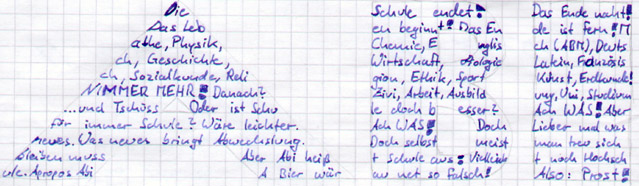 Die Schule endet! Das Ende naht!
Das Leb en beginnt! Das En de ist fern! M
athe, Physik, Chemie, E nglis ch (ABM), Deuts
ch, Geschichte, Wirtschaft, Biologie Latein, Französis
ch, Sozialkunde, Reli gion, Ethik, Sport Kunst, Erdkunde!
NIMMER MEHR! Danach? Zivi, Arbeit, Ausbild ung, Uni, Studium
...und Tschüss Oder ist Schu le doch b esser? Ach WAS! Aber
für immer Schule? Wäre leichter. Ach WAS! Doch Lieber mal was
neues. Was neues bringt Abwechslung. Doch selbst meist man treu sich
bleiben muss Aber Abi heiß t Schule aus! Vielleich t noch Hochsch
ule. Apropos Abi A Bier wär au net so falsch! Also: Prost!